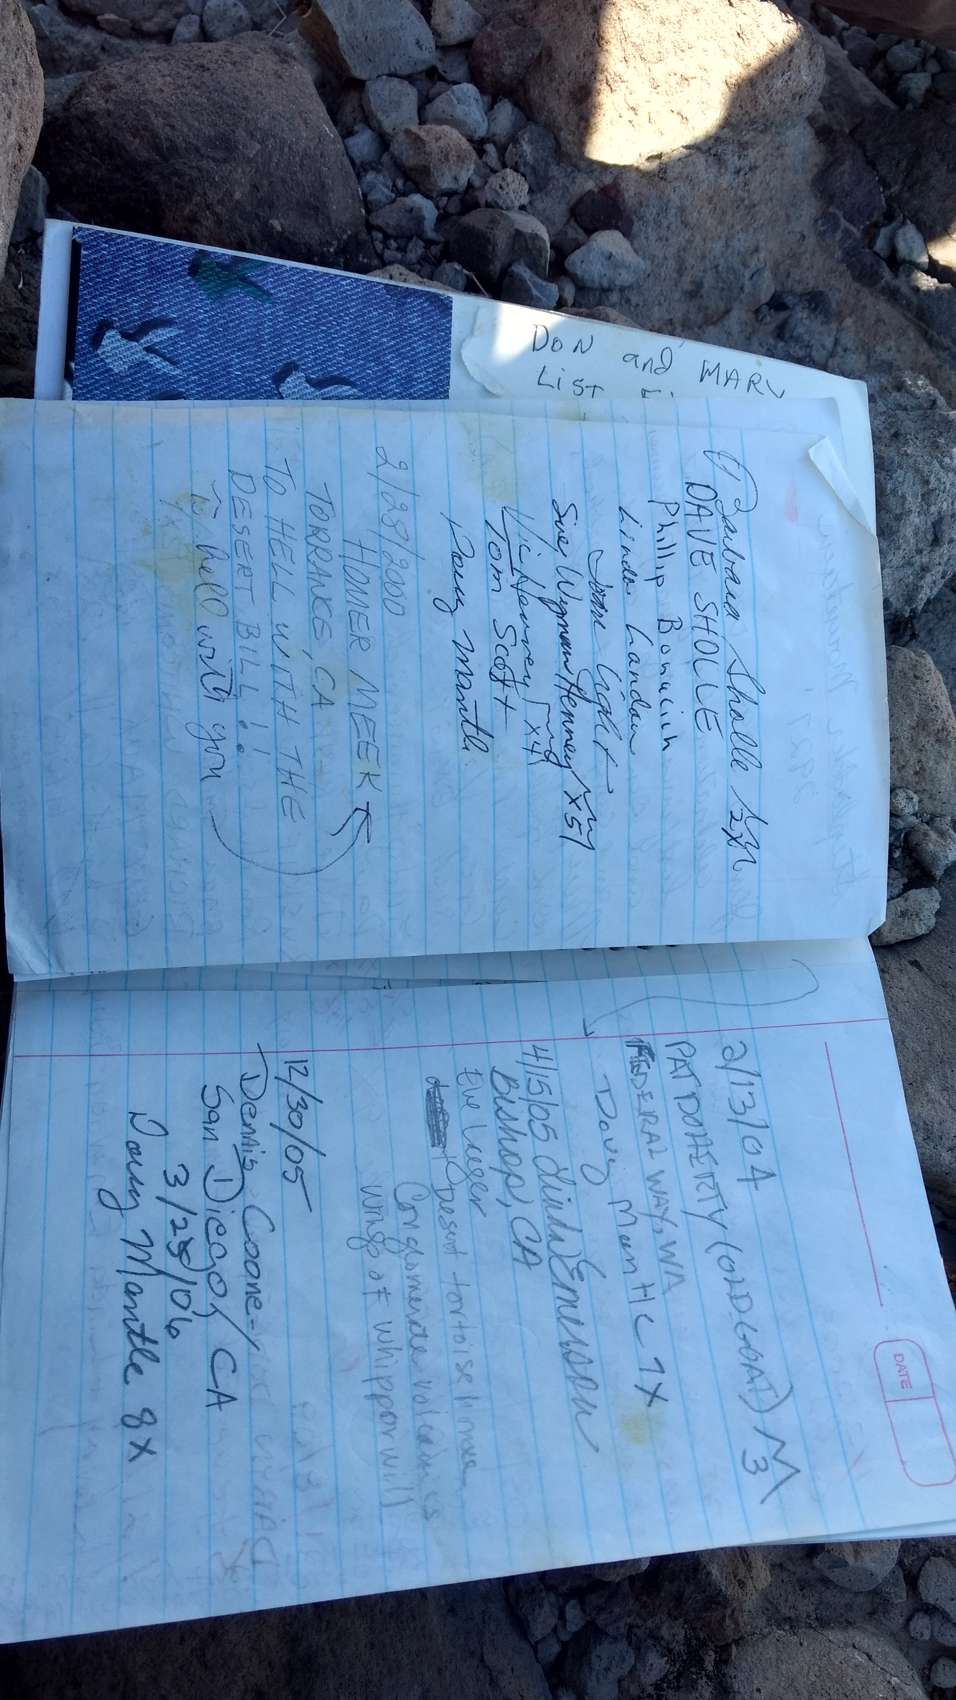 DON and MARY
LIST
Barbara Sholle
DAVE SHOLLE
Phillip Bonucich
Linda Landau
Joane Light
Sue Wyman Henney x5!
Vic Henney x4!
Tom Scott
Doug Mantle
2/28/2000
HOMER MEEK
TORRANCE CA
TO HELL WITH THE
DESERT BILL!!
To hell with you
DATE
2/13/04
PAT DOHERTY (OLD GOAT) M3
FEDERAL WAY, WA
Doug Mantle 7X
4/15/05 Lindi Emerson
Bishop, CA
Desert tortoise
Conglomerate volcanics
wings of whipporwill
12/30/05
Dennis Cooney
San Diego, CA
3/29/06
Doug Mantle 8x